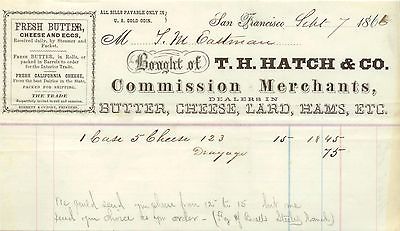 ALL BILLS PAYABLE ONLY IN
U. S. GOLD COIN.
FRESH BUTTER,
CHEESE AND EGGS,
Received daily, by Steamer and
Packet.
FRESH BUTTER, in Rolls, or
packed in Barrels to order
for the Interior Trade.
FRESH CALIFORNIA CHEESE,
From the best Dairies in the State,
PACKED FOR SHIPPING.
THE TRADE
Respectfully invited to call and examine.
San Francisco Sept 7 186
M
Bought of
T. H. HATCH & CO.
Commission Merchants,
DEALERS IN
BUTTER, CHEESE, LARD, HAMS, ETC.
1 Case 5 Cheese 123 15 18 45
Drayage 75
send you from 12 to 15 but we
send you choice as you order